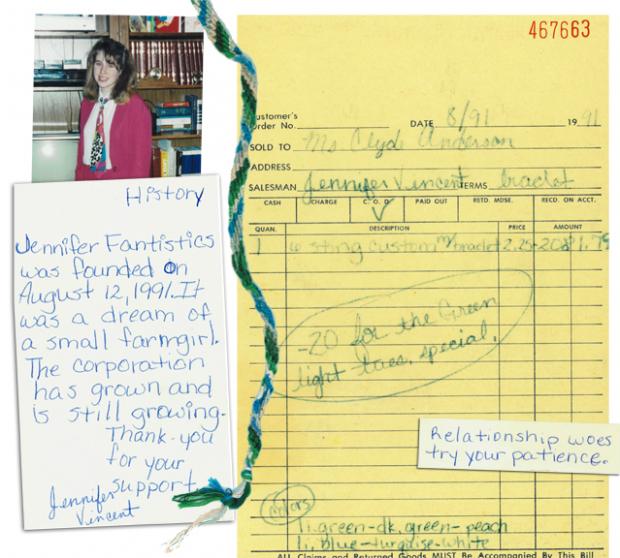 History
Jennifer Fantistics
was founded on
August 12, 1991. It
was a dream of
a small farmgirl.
The corporation
has grown and
is still growing.
Thank-you
for your
support,
Jennifer
Vincent
467663
ustomer's
rder No. DATE 8/91 19 91
SOLD TO Ms. Clyde Anderson
ADDRESS
SALESMAN Jennifer Vincent TERMS
CASH CHARGE C. O. D. PAID OUT RETD. MDSE. RECD. ON ACCT.
QUAN. DESCRIPTION PRICE AMOUNT
1 6 sting custom 2.25
-20 for the Green
light special.
Relationship woes
try your patience.
colors
li. green-dk. green-peach
li. blue-turquise-white
ALL Claims and Returned Goods MUST Be Accompanied By This Bill